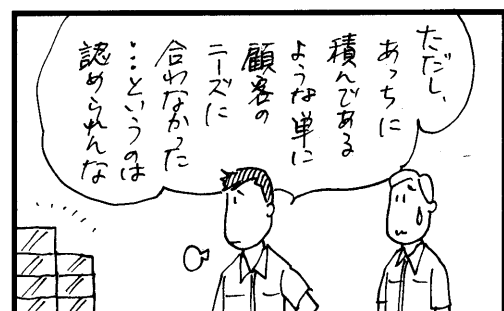 ただし、
あっちに
積んである
ような単に
顧客の
ニーズに
合わなかった
…というのは
認められんな